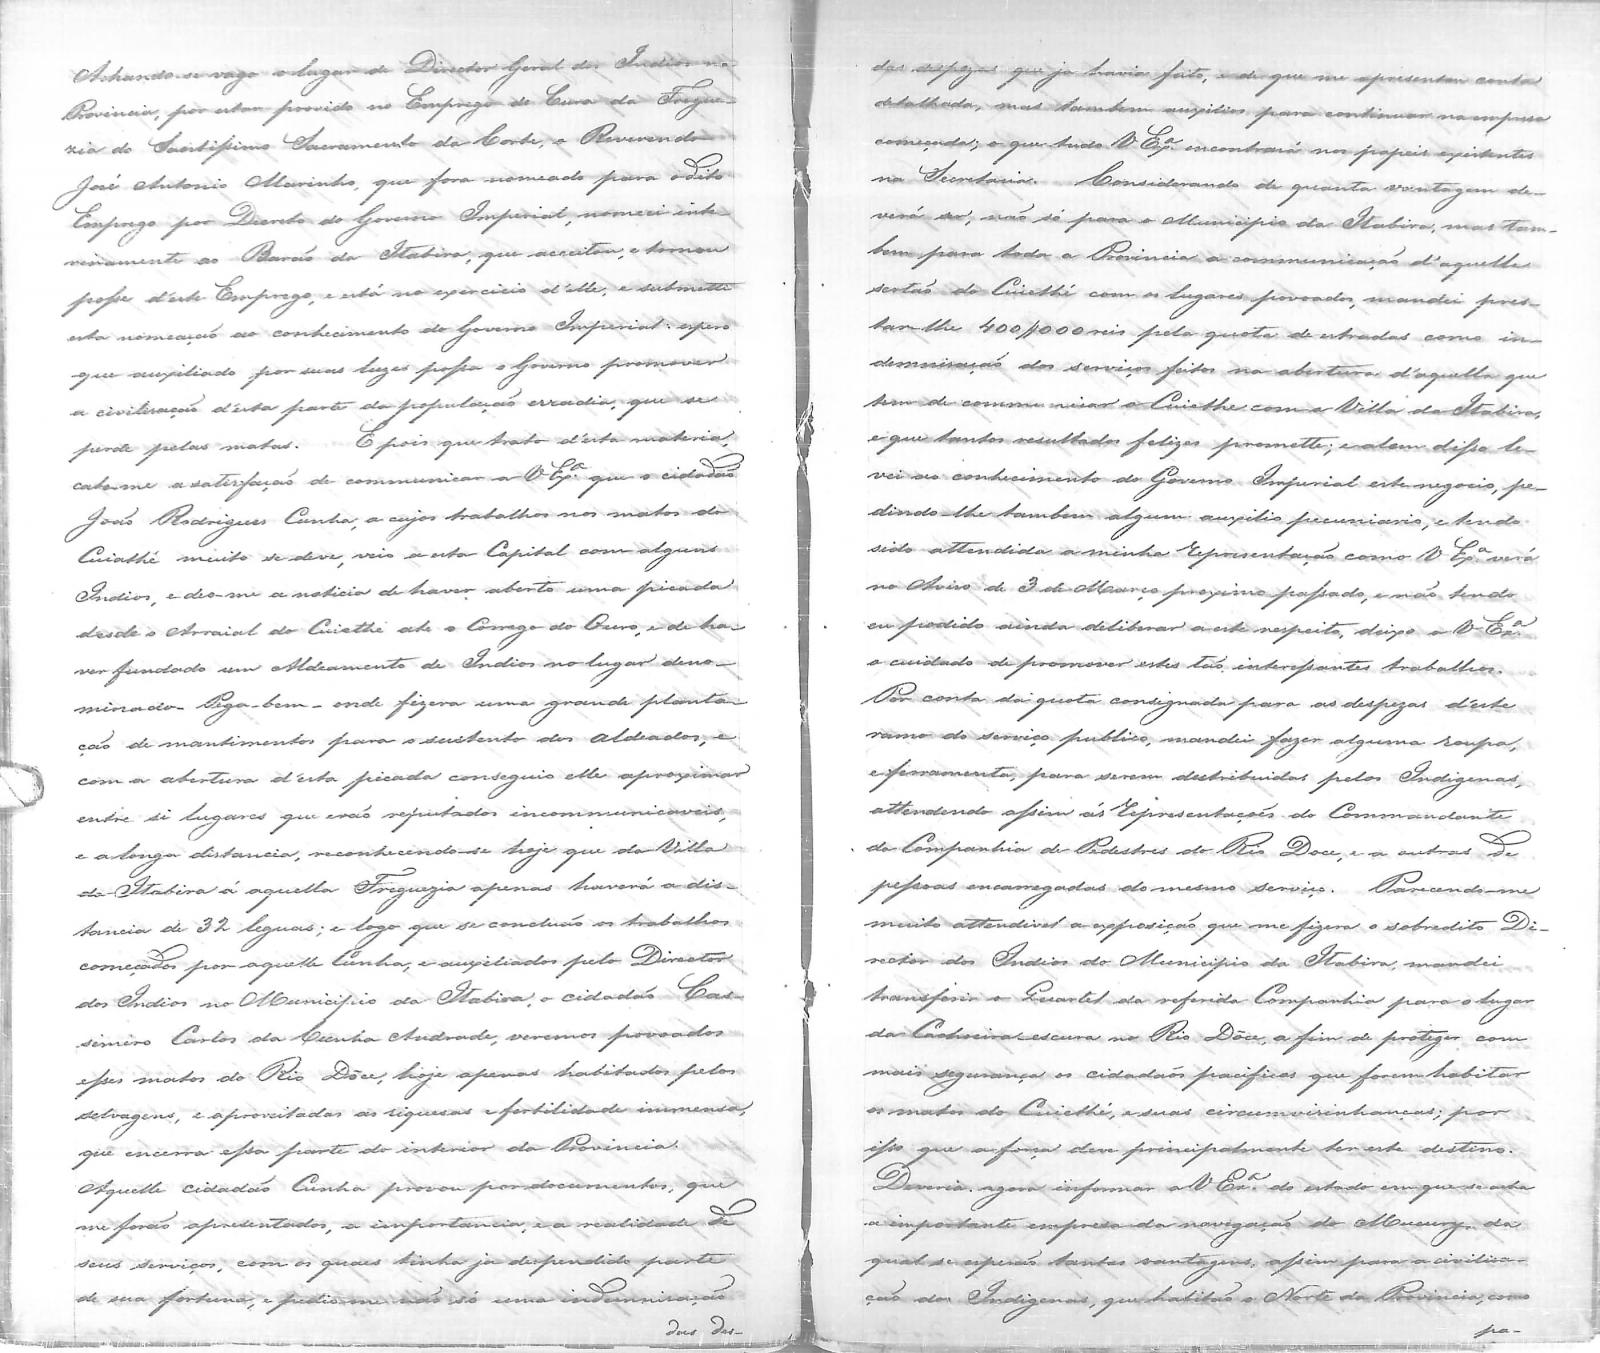 Achando-se vago o lugar de Director Geral dos Indios na
Provincia, por estar provido no Emprego de Cura da Fregue-
zia do Santissimo Sacramento da Corte, o Reverendo
José Antonio Marinho, que fora nomeado para o dito
Emprego por Decreto do Governo Imperial, nomeei inte-
rinamente ao Barão da Itabira, que acceitou, e tomou
posse d'este Emprego, e está no exercicio d'elle, e submetti
esta nomeação ao conhecimento do Governo Imperial: espero
que auxiliado por suas luzes possa o Governo promover
a civilisação d'esta parte da população erradia, que se
perde pelas matas. E pois que trato d'esta materia,
cabe-me a satisfação de communicar a V Exª. que o cidadão
João Rodrigues Cunha, a cujos trabalhos nos matos do
Cuiethé muito se deve, veio a esta Capital com alguns
Indios, e deo-me a noticia de haver aberto uma picada
desde o Arraial do Cuiethé até o Corrego do Ouro, e de ha-
ver fundado um Aldeamento de Indios no lugar deno-
minado - Pega-bem - onde fizera uma grande planta-
ção de mantimentos para o sustento dos aldeados, e
com a abertura d'esta picada conseguio elle aproximar
entre si lugares que erão reputados incommunicaveis,
e a longa distancia, reconhecendo-se hoje que da Villa
da Itabira á aquella Freguezia apenas haverá a dis-
tancia de 32 leguas; e logo que se concluão os trabalhos
começados por aquelle Cunha, e auxiliados pelo Director
dos Indios no Municipio da Itabira, o cidadão Cas-
simiro Carlos da Cunha Andrade, veremos povoados
esses matos do Rio Dôce, hoje apenas habitados pelos
selvagens, e aproveitadas as riquesas e fertilidade immensa,
que encerra essa parte do interior da Provincia.
Aquelle cidadão Cunha provou por documentos, que
me forão apresentados, a importancia, e a realidade de
seus serviços, com os quaes tinha ja despendido parte
de sua fortuna, e pedio-me não só uma indemnisação
das des-
das despezas que ja havia feito, e de que me apresentou conta
detalhada, mas tambem auxilios para continuar na empresa
começada; o que tudo V Exª. encontrará nos papeis existentes
na Secretaria. Considerando de quanta vantagem de-
verá ser, não só para o Municipio da Itabira, mas tam-
bem para toda a Provincia a communicação d'aquelle
sertão do Cuiethé com os lugares povoados, mandei pres-
tar-lhe 400$000 reis pela quota de estradas como in-
demnisação dos serviços feitos na abertura d'aquella que
tem de communicar o Cuiethe com a Villa da Itabira,
e que tantos resultados felizes promette; e alem disso le-
vei ao conhecimento do Governo Imperial este negocio, pe-
dindo-lhe tambem algum auxilio pecuniario, e tendo
sido attendida a minha Representação como V Exª. verá
no Aviso de 3 de Março proximo passado, e não tendo
eu podido ainda deliberar a este respeito, deixo a V Exª.
o cuidado de promover estes tão interessantes trabalhos.
Por conta da quota consignada para as despezas d'este
ramo do serviço publico, mandei fazer alguma roupa,
e ferramenta, para serem destribuidas pelos Indigenas,
attendendo assim ás Representações do Commandante
da Companhia de Pedestres do Rio Doce, e a outras de
pessoas encarregadas do mesmo serviço. Parecendo-me
muito attendivel a exposição que me fizera o sobredito Di-
rector dos Indios do Municipio da Itabira, mandei
transferir o Quartel da referida Companhia para o lugar
da Cachoeira-escura no Rio Dôce, a fim de proteger com
mais segurança os cidadãos pacificos que forem habitar
os matos do Cuiethé, e suas circumvisinhanças; por
isso que a força deve principalmente ter este destino.
Deveria agora informar a V Exª. do estado em que se acha
a importante empresa da navegação do Mucury, da
qual se esperão tantas vantagens, assim para a civilisa-
ção dos Indigenas, que habitão o Norte da Provincia, como
pa-